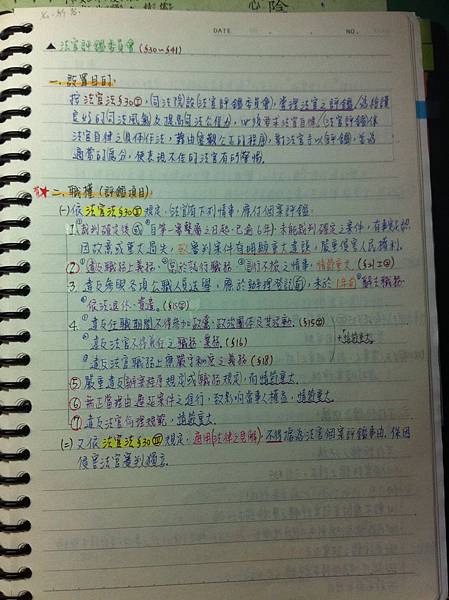 DATE NO.
▲ 法官評鑑委員會 (§30~§41)
一、設置目的:
按法官法§30Ⅰ,司法院設法官評鑑委員會,掌理法官之評鑑/為維護
良好的司法風氣及提高司法公信力,
法官自律之
適當的處分,使表現不佳的法官有所警惕。
★二、職權(評鑑項目)
(一)依法官法§30Ⅱ規定,法官有下列情事,應付個案評鑑:
1. ①裁判確定後或②自第一審繫屬之日起,已逾6年,未能裁判確定之案件,有事實足認
因故意或重大過失,致審判案件有明顯重大違誤,嚴重侵害人民權利。
② 違反職務上義務、怠於執行職務、言行不檢之情事,情節重大。(§21Ⅰ②)
3. 違反參與各項公職人員選舉,應於辦理登記前,未於1年前辭去職務、
依法退休、資遣。(§15Ⅱ)
4. ①違反任職期間不得參加政黨、政治團體及其活動。(§15Ⅰ)
②違反法官不得兼任之職務、業務。(§16)
③違反法官職務上應嚴守秘密之義務(§18)
+情節重大
⑤ 嚴重違反辦案程序規定或職務規定,而情節重大
⑥ 無正當理由遲延案件之進行,致影響當事人權益,情節重大
⑦ 違反法官倫理規範,情節重大
(二)又依法官法§30Ⅲ規定,適用法律之見解,不得據為法官個案評鑑事由。係因
侵害法官審判獨立。